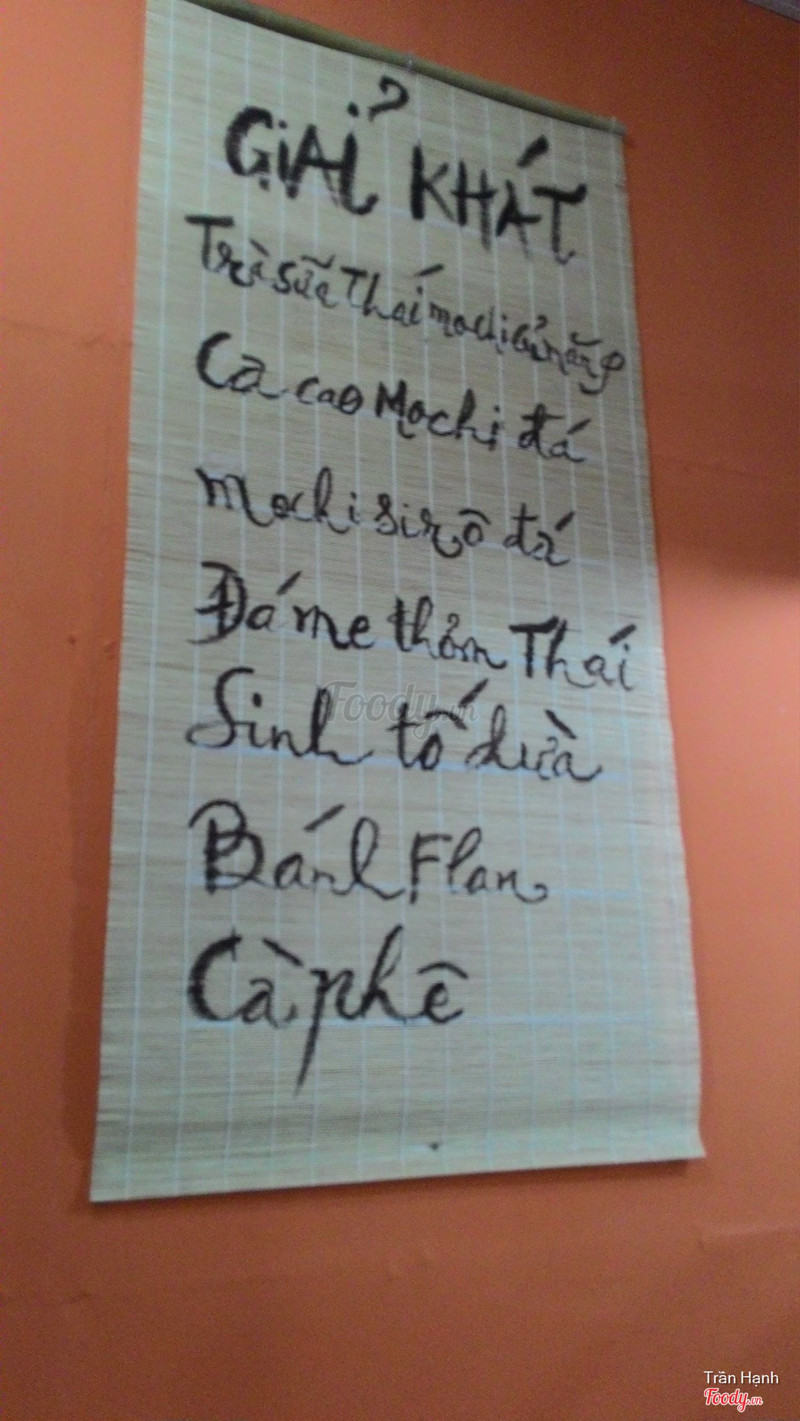 GIẢI KHÁT
Trà sữa Thái mochi củ năng
Ca cao Mochi đá
mochi sirô đá
Đá me thơm Thái
Sinh tố dừa
Bánh Flan
Cà phê
Foody.vn
Trần Hạnh
Foody.vn